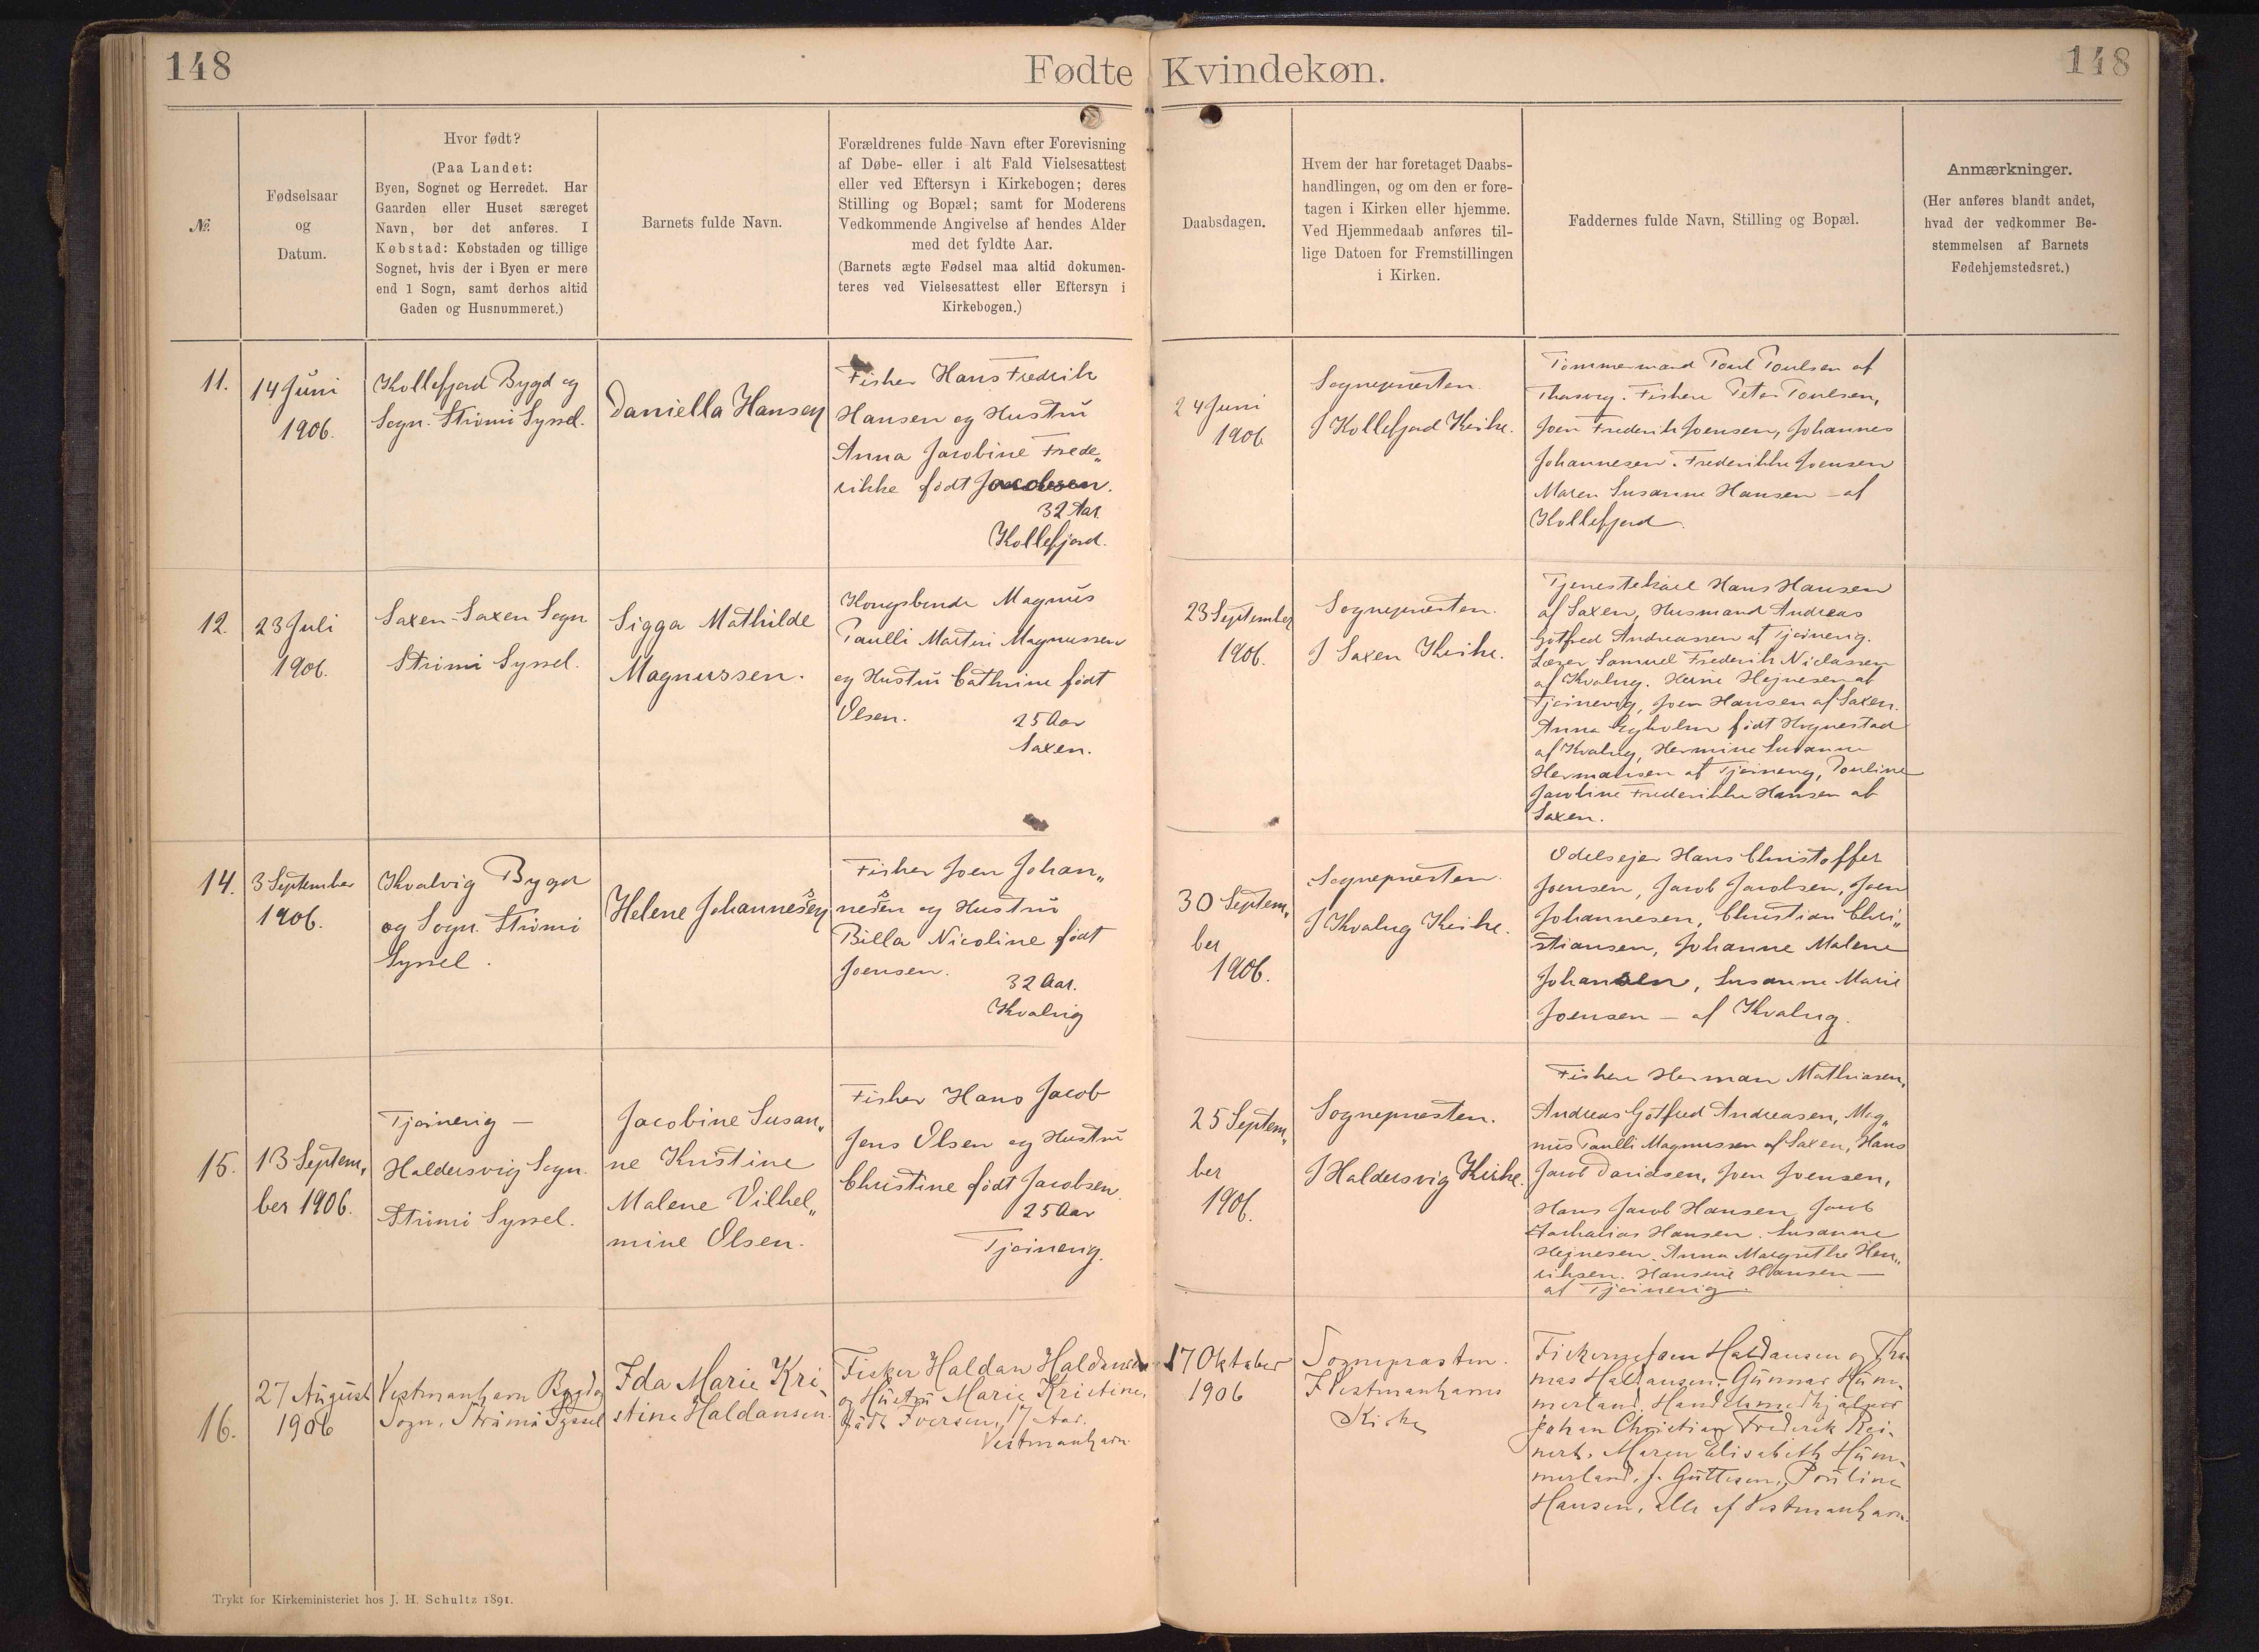 148
Fødte Kvindekøn.
148
№
Fødselsaar
og
Datum.
Hvor født?
(Paa Landet:
Byen, Sognet og Herredet. Har
Gaarden eller Huset særeget
Navn, bør det anføres. I
Købstad: Købstaden og tillige
Sognet, hvis der i Byen er mere
end 1 Sogn, samt derhos altid
Gaden og Husnummeret.)
Barnets fulde Navn.
Forældrenes fulde Navn efter Forevisning
af Døbe- eller i alt Fald Vielsesattest
eller ved Eftersyn i Kirkebogen; deres
Stilling og Bopæl; samt for Moderens
Vedkommende Angivelse af hendes Alder
med det fyldte Aar.
(Barnets ægte Fødsel maa altid dokumen-
teres ved Vielsesattest eller Eftersyn i
Kirkebogen.)
Daabsdagen.
Hvem der har foretaget Daabs-
handlingen, og om den er fore-
tagen i Kirken eller hjemme.
Ved Hjemmedaab anføres til-
lige Datoen for Fremstillingen
i Kirken.
Faddernes fulde Navn, Stilling og Bopæl.
Anmærkninger.
(Her anføres blandt andet,
hvad der vedkommer Be-
stemmelsen af Barnets
Fødehjemstedsret.)
11.
14 Juni
1906.
Kollefjord Bygd og
Sogn. Strömö Syssel.
Daniella Hansen
Fisker Hans Fredrik
Hansen og Hustrü
Anna Jacobine Frede„
rikke födt Jacobsen.
32 Aar.
Kollefjord.
24 Juni
1906
Sognepresten.
I Kollefjord Kirke.
Tömmermand Poul Poulsen af
Thorsvig. Fiskere Peter Poulsen,
Joen Frederik Joensen, Johannes
Johannesen. Frederikke Joensen
Maren Susanne Hansen - af
Kollefjord.
12.
23 Juli
1906.
Saxen-Saxen Sogn
Strömö Syssel.
Sigga Mathilde
Magnussen.
Kongsbonde Magnus
Paulli Martin Magnussen
og Hustrü Cathrine født
Olsen.
25 Aar
Saxen.
23 September
1906.
Sognepresten.
I Saxen Kirke.
Tjenestekarl Hans Hansen
af Saxen, Husmand Andreas
Gotfred Andreassen af Tjörnevig.
Lærer Samuel Frederik Niclassen
af Kvalvig. Heine Hejnesen af
Tjörnevig, Joen Hansen af Saxen.
Anna födt
af Kvalvig, Hermine Susanne
Hermansen af Tjörnevig, Pouline
Jacobine Frederikke Hansen af
Saxen.
14.
3 September
1906.
Kvalvig Bygd
og Sogn. Strömö
Syssel.
Helene Johannesen
Fisker Joen Johan„
nesen og Hustrü
Billa Nicoline födt
Joensen.
32 Aar.
Kvalvig
30 Septem„
ber
1906.
Sognepresten.
I Kvalvig Kirke.
Odelsejer Hans Christoffer
Joensen, Jacob Jacobsen, Joen
Johannesen, Christian Chri„
stiansen, Johanne Malene
Johansen, Susanne Marie
Joensen - af Kvalvig.
15.
13 Septem„
ber 1906.
Tjörnevig -
Haldersvig Sogn.
Strömö Syssel.
Jacobine Susan„
ne Kristine
Malene Vilhel„
mine Olsen.
Fisker Hans Jacob
Jens Olsen og Hustrü
Christine födt Jacobsen.
25 Aar
Tjörnevig.
25 Septem„
ber
1906.
Sognepresten.
I Haldersvig Kirke.
Fiskere Herman Mathiasen,
Andreas Gotfred Andreasen, Mag„
nus Paulli Magnussen af Saxen, Hans
Jacob Davidsen, Joen Joensen,
Hans Jacob Hansen, Jacob
Zacharias Hansen. Susanne
Hejnesen. Anna Margrethe Hen„
riksen. Hansine Hansen -
af Tjörnevig.
16.
27 August
1906
Vestmanhavn Bygd og
Sogn, Strömö Syssel
Ida Marie Kri-
stine Haldansen.
Fisker Haldan Haldansen
og Hüstrü Marie Kristine,
född Iversen, 17 Aar.
Vestmanhavn.
17 Oktober
1906
Sognepræsten.
I Vestmanhavns
Kirke
Fiskerne Joen Haldansen og Tho-
mas Haldansen, Günnar Hüm-
merland, Handelsmedhjælper
Johan Christian Frederik Rei-
nert, Maren Elisabeth Hüm-
merland, f. Güttesen, Pouline
Hansen, alle af Vestmanhavn.
Trykt for Kirkeministeriet hos J. H. Schultz 1891.